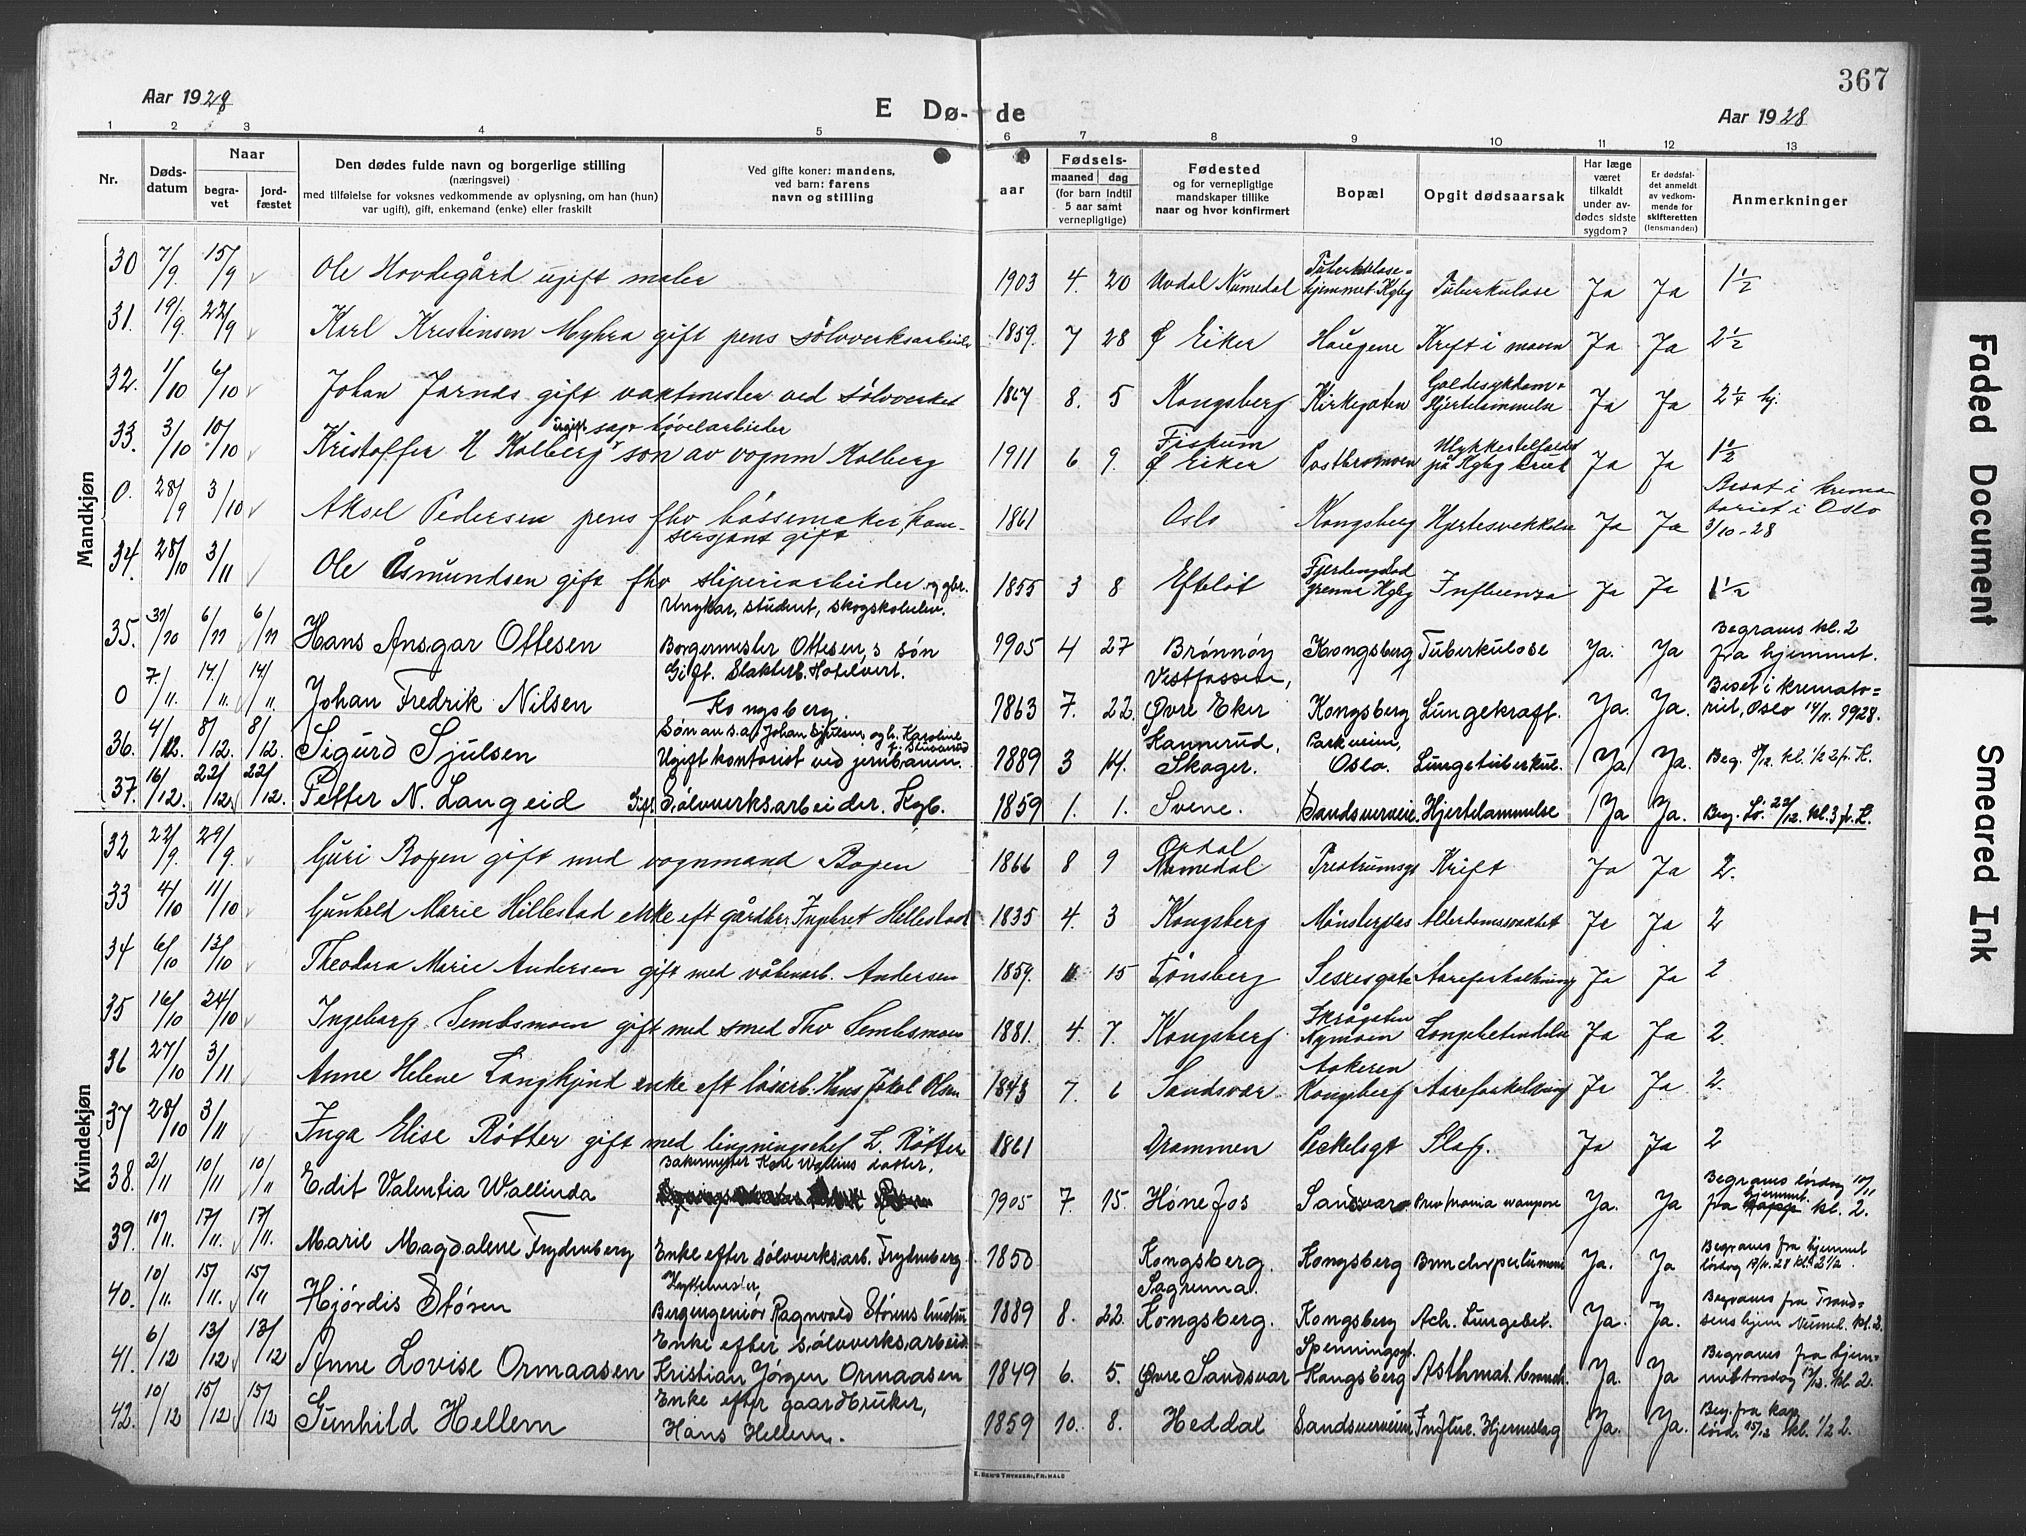 367
Aar 1928 E Dø- de Aar 1928
1 2 3 4 5 6 7 8 9 10 11 12 13
Nr. Døds-datum Naar begra-vet jord-fæstet Den dødes fulde navn og borgerlige stilling (næringsvei) med tilføielse for voksnes vedkommende av oplysning, om han (hun) var ugift), gift, enkemand (enke) eller fraskilt Ved gifte koner: mandens, ved barn: farens navn og stilling aar Fødsels- maaned dag (for barn indtil 5 aar samt vernepligtige) Fødested og for vernepligtige mandskaper tillike naar og hvor konfirmert Bopæl Opgit dødsaarsak Har læge været tilkaldt under av-dødes sidste sygdom? Er dødsfal-det anmeldt av vedkom-mende for skifteretten (lensmanden) Anmerkninger
Mandkjøn
30 7/9 15/9 Ole Hovdegård ugift maler 1903 4. 20 Uvdal Numedal Tuberkulose=hjemmet Kgbg Tuberkulose Ja Ja 1 1/2
31. 19/9. 22/9 Karl Kristinsen Myhra gift pens sølvverksarbeider 1859. 7 28 Ø Eiker Haugene Kreft i maven Ja Ja 2 1/2
32. 1/10 6/10 Johan Jarnes gift vaktmester ved sølvverket 1867 8. 5 Kongsberg Kirkegaten Galdesykdom + Hjertelammelse Ja Ja 2 1/4 hj.
33. 3/10 10/10 Kristoffer H Kolberg ugift sag+høvelarbeider søn av vognm Kolberg 1911 6 9. Fiskum Ø Eiker Ulykkestilfælde på Kgbg brug Ja Ja 1 1/2
0. 28/9 3/10 Aksel Pedersen pens fhv bøssemaker, gift 1861 Oslo Kongsberg Hjertesvekkelse Ja Ja Besat i krematoriet i Oslo 3/10-28
34. 28/10 3/11 Ole Åsmundsen gift fhv sliperiarbeider og gbr. 1855 3 8 Efteløt Kgbg Influensa Ja Ja 1 1/2
35. 31/10 6/11 6/11 Hans Ansgar Ottesen Ungkar, student, skogskoleelev. Borgermester Ottesen, s søn 1905 4 27 Brønnøy Kongsberg Tuberkulose Ja. Ja Begraves kl. 2 fra hjemmet.
0 7./11. 14/11. 14/11 Johan Fredrik Nilsen Gift. Slakterb. Hotelvert. Kongsberg. 1863 7. 22. Vestfossen, Øvre Eker Kongsberg Lungekraft. Ja. Ja. Beset i kremato=riet, Oslo 14/11. 1928.
36. 4/12. 8/12. 8/12. Sigurd Sjulsen Søn av s.a. Johan Sjulsen og h. Karoline Ugift kontorist ved jernbanen. 1889 3 14. Hannerud, Skoger. Parkveien, Oslo. Lungetuberkul. Ja. Ja. Beg. 8/12. kl. 1/2 2 fr. K.
37. 16/12. 22/12 22/12. Petter N. Langeid Gift. Sølvverksarbeider. Kgb. 1859 1. 1. Svene. Sandsverveie. Hjertelammelse Ja Ja. Beg. Lø. 22/12. kl. 3 fr. K.
Kvindekjøn
32 22/9 29/9. Guri Bogen gift med vognmand Bogen 1866 8 9 Numedal Kreft Ja Ja 2.
33 4/10 11/10 Gunhild Marie Hillestad enke eft gårdbr. Ingebret Hellestad 1835 4. 3 Kongsberg Alderdomssvakhet Ja Ja 2
34 6/10 13/10 Theodora Marie Andersen gift med våbenarb. Andersen 1859. 11 15 Tønsberg Aareforkalkning Ja Ja 2
35 16/10 24/10 Ingeborg Sembsmoen gift med smed Thv Sembsmoen 1881. 4. 7. Kongsberg Skrågaten Nymoen Lungebetendelse Ja Ja 2.
36 27/10 3/11 Anne Helene Langkjind enke eft løsarb. Hans Jakob Olsen 1843 7. 6 Sandsvær Aakeren Kongsberg Aareforkalkning Ja Ja 2.
37 28/10 3/11 Inga Elise Røtter gift med ligningschef L. Røtter 1861 Drammen Seckelsgt Slag. Ja Ja 2
38. 2/11 10/11 10/11 Edit Valentia Wallinda Bakermester Karl Wallins datter, 1905 7. 15. Hønefos Sandsvær Ja. Ja Begraves lørdag 10/11 fra hjemmet kl. 2.
39. 10/11. 17/11. 17/11. Marie Magdalene Frydenberg Enke efter sølvverksarb. Frydenberg. 1850 Kongsberg. Kongsberg Ja. Ja Begraves fra hjemmet lørdag
40. 10/11. 15/11. 15/11 Hjørdis Støren Hyttemester, Bergingeniør Ragnvald Størens hustru 1889 8. 22. Sagrenna. Kongsberg. Kongsberg Ach. Lungebet. Ja. Ja. Begraves fra kl. 2.
41. 6/12 13/12 13/12 Anne Lovise Ormaasen Enke efter sølvverksarbeid. Kristian Jørgen Ormaasen 1849 6. 5. Øvre Sandsvær Spenningsgt. Kongsberg Asthmat. bronch. Ja. Ja Begraves fra hjem=met torsdag 13/12. kl. 2.
42. 10/12 15/12 15/12 Gunhild Hellem Enke efter gaardbruker, Hans Hellem. 1859 10. 8. Heddal Sandsverveien Influe. Hjerneslag Ja. Ja. Beg. fra kap. lørd. 15/12 kl. 1/2 2.
E. SEM'S TRYKKERI, FR.HALD
Faded Document
Smeared Ink